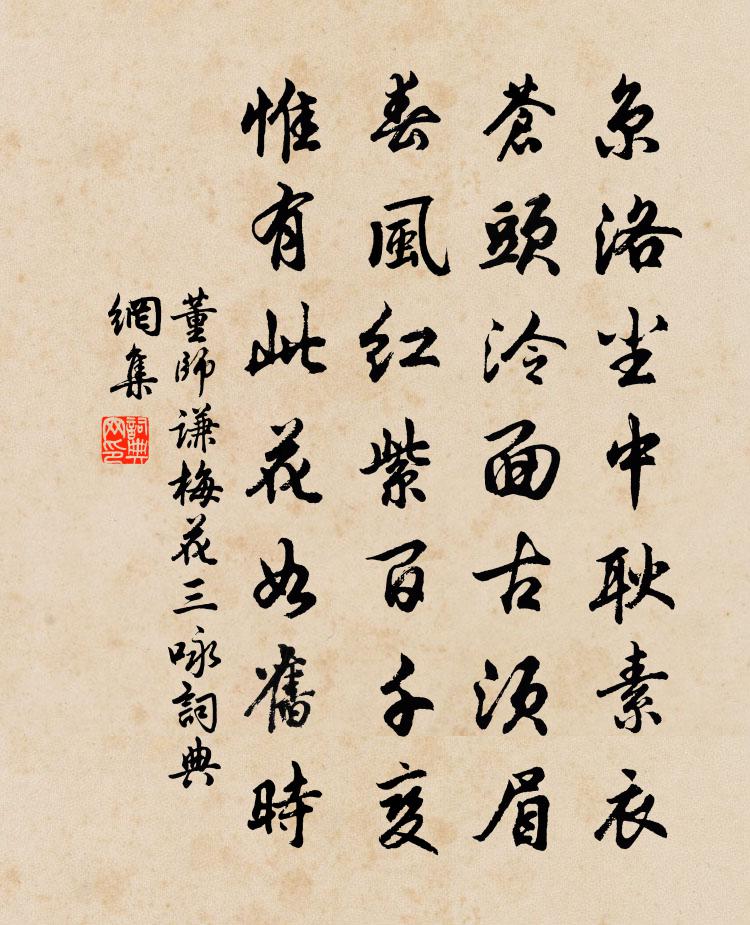 京洛尘中耿素衣
蒼頭冷面古須眉
春風紅紫百千变
惟有此花如舊時
董師谦梅花三咏詞典
網集
詞典
网印